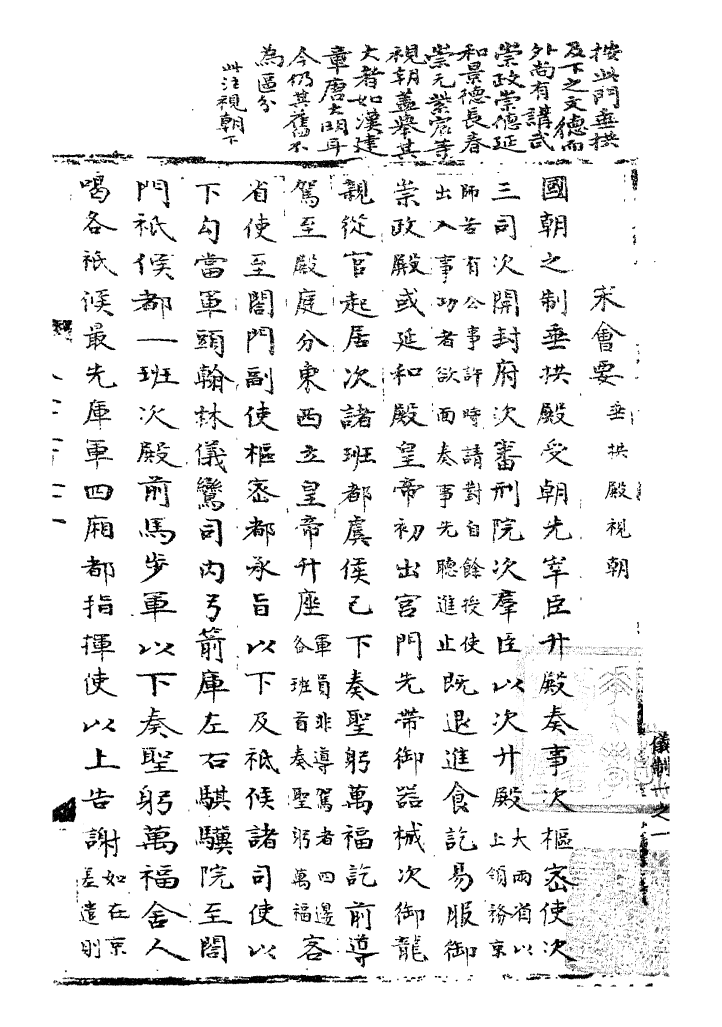 按此門垂拱
及下之文德而
外尚有講武
崇政崇德延
和景德長春
崇元紫宸等
視朝蓋舉其
大者如漢建
章唐大明耳
今仍其舊不
為區分
此注視朝下
宋會要 垂拱殿視朝
國朝之制垂拱殿受朝先宰臣升殿奏事次樞密使次
三司次開封府次審刑院次羣臣以次升殿大兩省以上領務京
師若有公事許時請對自餘授使
出入事功者欲面奏事先聽進止既退進食訖易服御
崇政殿或延和殿皇帝初出宮門先帶御器械次御龍
親從官起居次諸班都虞候已下奏聖躬萬福訖前導
駕至殿庭分東西立皇帝升座軍員非導駕者四邊各班首奏聖躬萬福客
省使至閤門副使樞密都承旨以下及祗候諸司使以
下勾當軍頭翰林儀鸞司內弓箭庫左右騏驥院至閤
門祇候都一班次殿前馬步軍以下奏聖躬萬福舍人
喝各祇候最先庫軍四廂都指揮使以上告謝如在京差遣則
儀制一之一